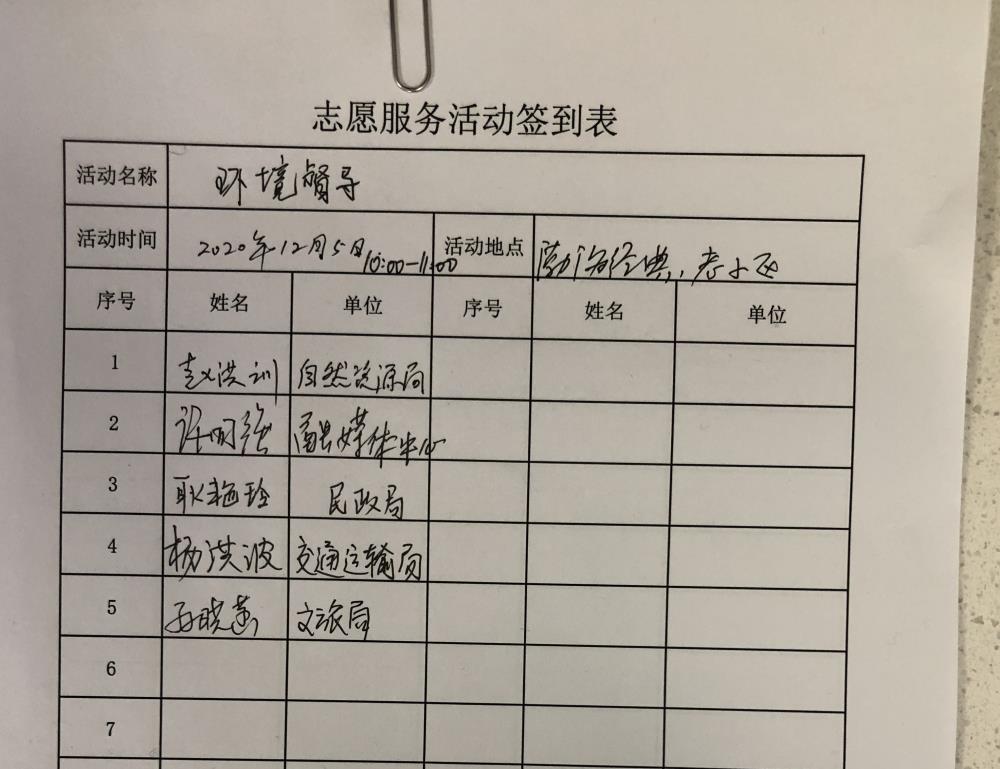 志愿服务活动签到表
活动名称 环境督导
活动时间 2020年12月5日10:00-11:00 活动地点 渤海经典、
序号 姓名 单位 序号 姓名 单位
1 赵洪训 自然资源局
2 许明强 融媒体中心
3 耿艳玲 民政局
4 杨洪波 交通运输局
5 孙晓燕 文旅局
6
7